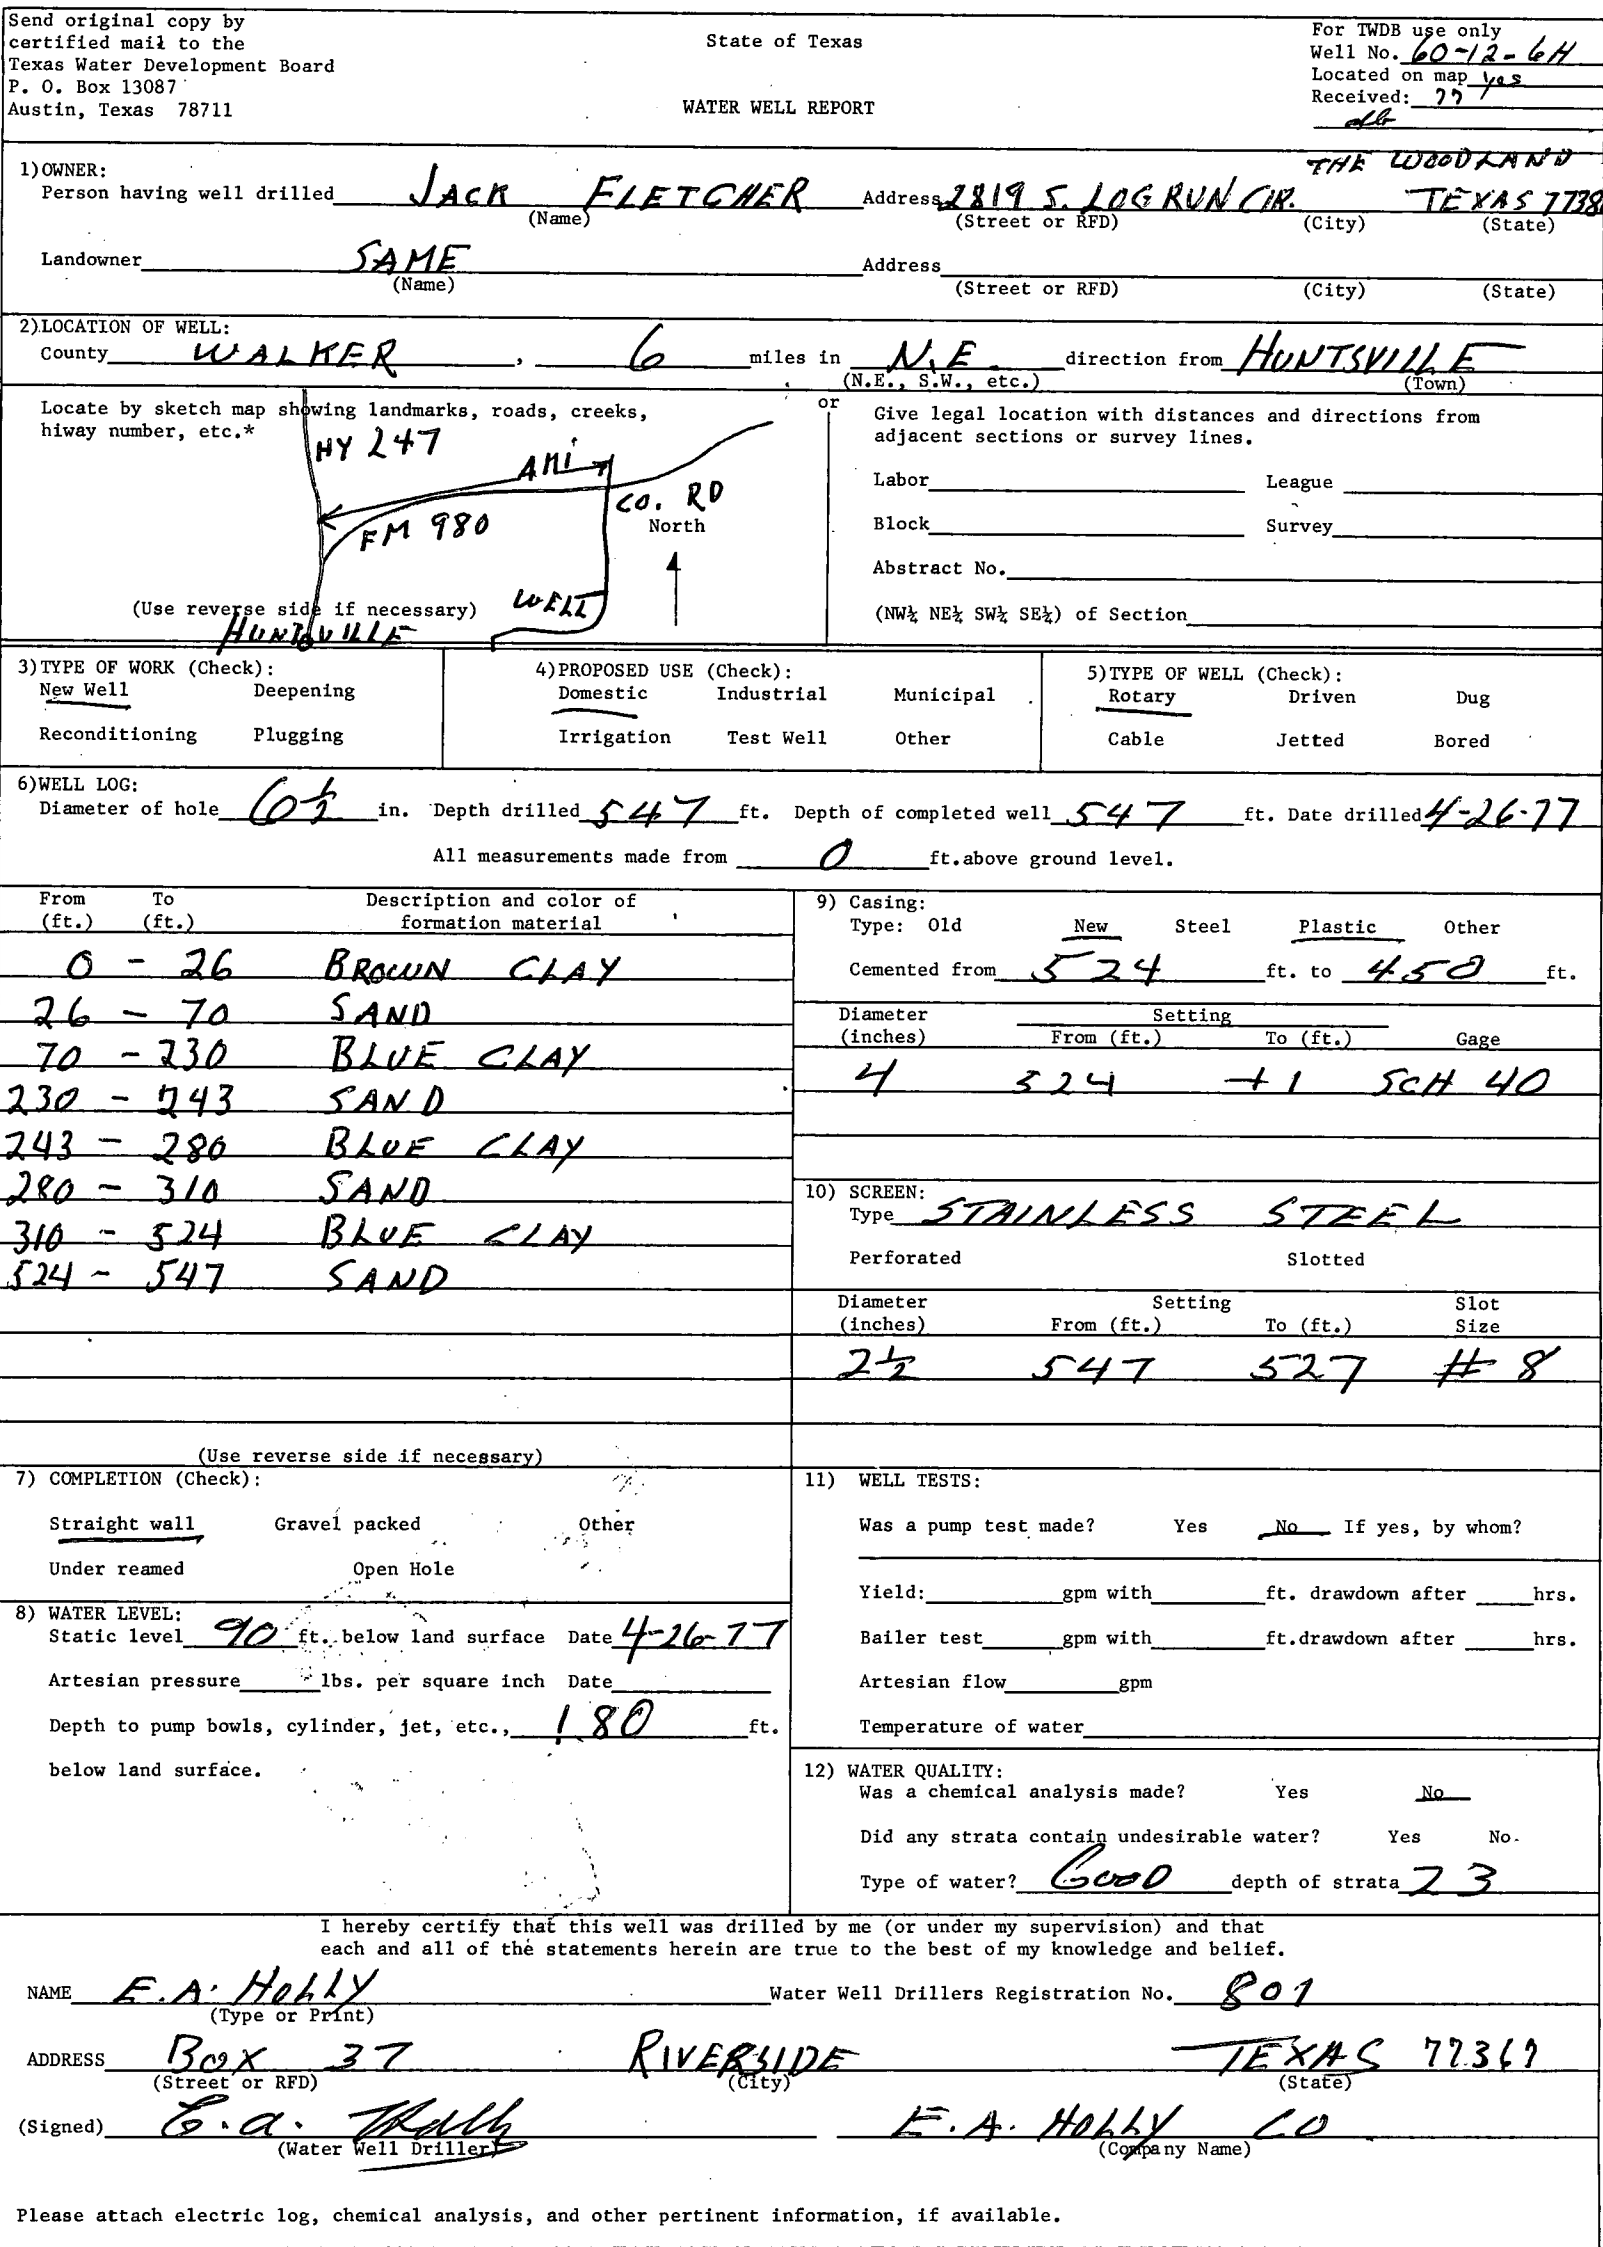 Send original copy by
certified mail to the
Texas Water Development Board
P. O. Box 13087
Austin, Texas 78711
State of Texas
WATER WELL REPORT
For TWDB use only
Well No. 60-12-6H
Located on map yes
Received: 77
1) OWNER:
THE WOODLAND
Person having well drilled JACK FLETCHER Address 2819 S. LOG RUN CIR. TEXAS 7738
(Name) (Street or RFD) (City) (State)
Landowner SAME Address
(Name) (Street or RFD) (City) (State)
2) LOCATION OF WELL:
County WALKER, 6 miles in N.E. direction from HUNTSVILLE
(N.E., S.W., etc.) (Town)
Locate by sketch map showing landmarks, roads, creeks,
hiway number, etc.*
HY 247
4 MI
CO. RD
FM 980
North
WELL
(Use reverse side if necessary)
HUNTSVILLE
or
Give legal location with distances and directions from
adjacent sections or survey lines.
Labor League
Block Survey
Abstract No.
(NW¼ NE¼ SW¼ SE¼) of Section
3) TYPE OF WORK (Check):
New Well Deepening
Reconditioning Plugging
4) PROPOSED USE (Check):
Domestic Industrial Municipal
Irrigation Test Well Other
5) TYPE OF WELL (Check):
Rotary Driven Dug
Cable Jetted Bored
6) WELL LOG:
Diameter of hole 6½ in. Depth drilled 547 ft. Depth of completed well 547 ft. Date drilled 4-26-77
All measurements made from 0 ft.above ground level.
From To Description and color of
(ft.) (ft.) formation material
0 - 26 BROWN CLAY
26 - 70 SAND
70 - 230 BLUE CLAY
230 - 243 SAND
243 - 280 BLUE CLAY
280 - 310 SAND
310 - 524 BLUE CLAY
524 - 547 SAND
(Use reverse side if necessary)
9) Casing:
Type: Old New Steel Plastic Other
Cemented from 524 ft. to 450 ft.
Diameter Setting
(inches) From (ft.) To (ft.) Gage
4 524 +1 SCH 40
10) SCREEN:
Type STAINLESS STEEL
Perforated Slotted
Diameter Setting Slot
(inches) From (ft.) To (ft.) Size
2½ 547 527 # 8
7) COMPLETION (Check):
Straight wall Gravel packed Other
Under reamed Open Hole
8) WATER LEVEL:
Static level 90 ft. below land surface Date 4-26-77
Artesian pressure lbs. per square inch Date
Depth to pump bowls, cylinder, jet, etc., 180 ft.
below land surface.
11) WELL TESTS:
Was a pump test made? Yes No If yes, by whom?
Yield: gpm with ft. drawdown after hrs.
Bailer test gpm with ft.drawdown after hrs.
Artesian flow gpm
Temperature of water
12) WATER QUALITY:
Was a chemical analysis made? Yes No
Did any strata contain undesirable water? Yes No
Type of water? GOOD depth of strata 23
I hereby certify that this well was drilled by me (or under my supervision) and that
each and all of the statements herein are true to the best of my knowledge and belief.
NAME E.A. HOLLY Water Well Drillers Registration No. 801
(Type or Print)
ADDRESS BOX 37 RIVERSIDE TEXAS 77367
(Street or RFD) (City) (State)
(Signed) E. A. Holly E. A. HOLLY CO
(Water Well Driller) (Company Name)
Please attach electric log, chemical analysis, and other pertinent information, if available.